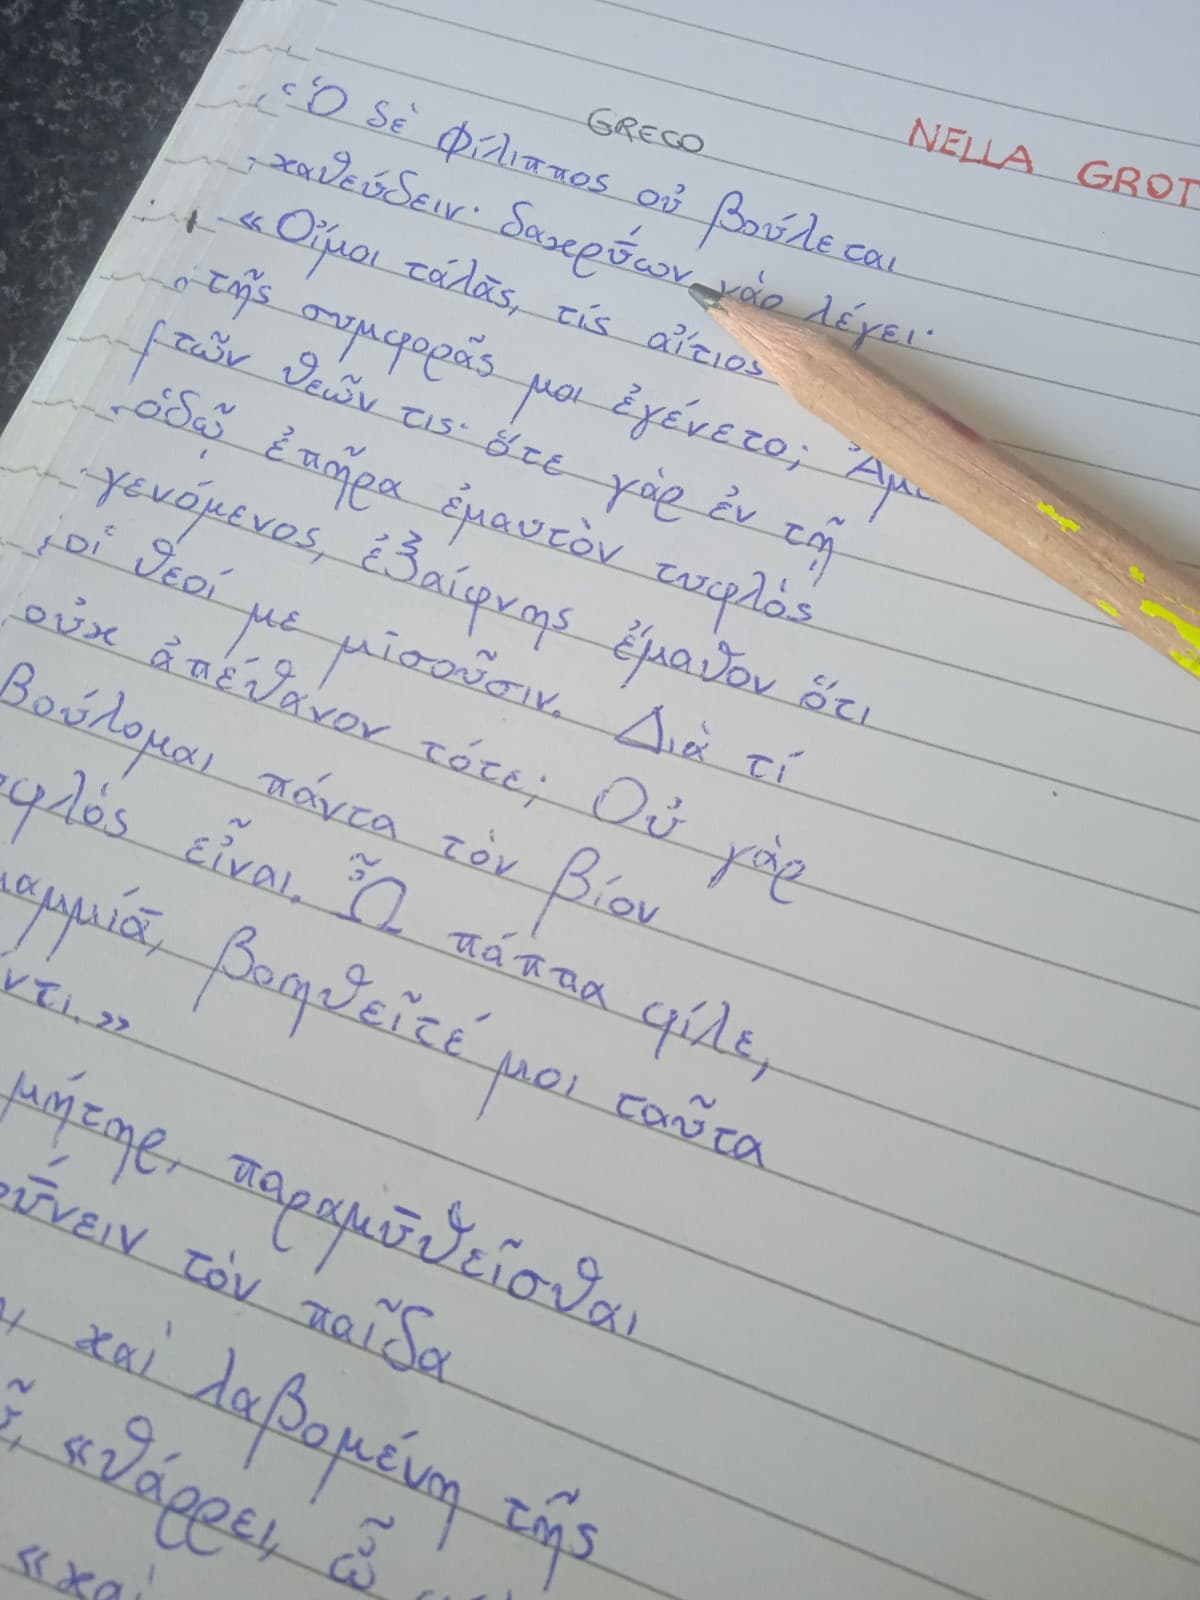 GRECO
NELLA GROT
Ὁ δὲ Φίλιππος οὐ βούλεται
καθεύδειν· δακρύ̄ων γὰρ λέγει·
«Οἴμοι τάλᾱς, τίς αἴτιος
τῆς συμφορᾶς μοι ἐγένετο;
τῶν θεῶν τις· ὅτε γὰρ ἐν τῇ
ὁδῷ ἐπῆρα ἐμαυτὸν τυφλὸς
γενόμενος, ἐξαίφνης ἔμαθον ὅτι
οἱ θεοί με μῑσοῦσιν. Διὰ τί
οὐκ ἀπέθανον τότε; Οὐ γὰρ
βούλομαι πάντα τὸν βίον
φλὸς εἶναι. Ὦ πάππα φίλε,
αμμίᾱ, βοηθεῖτέ μοι ταῦτα
ντι.»
μήτηρ, παραμῡθεῖσθαι
ῡ́νειν τὸν παῖδα
καὶ λαβομένη τῆς
«θάρρει, ὦ
«καὶ